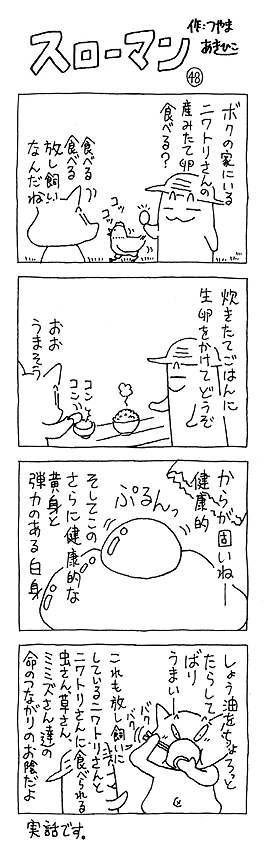 スローマン
作:つやま
あきひこ
㊽
ボクの家にいる
ニワトリさんの
産みたて卵
食べる?
食べる
食べる
放し飼い
なんだね
コッ
コッ
炊きたてごはんに
生卵をかけてどうぞ
おお
うまそう
コンコン
コン
からが固いねー
健康的
ぷるんっ
そしてこの
さらに健康的な
黄身と
弾力のある白身
しょう油をちょろっと
たらして
ばり
うまいー
バク
バク
これも放し飼いに
しているニワトリさんと
ニワトリさんに食べられる
虫さん草さん、
ミミズさん達の
命のつながりのお陰だよ
実話です。